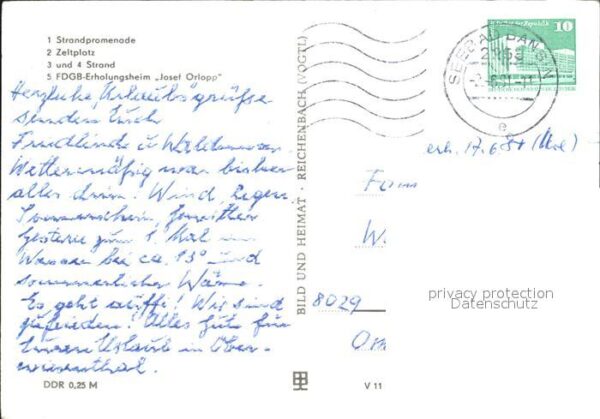 1 Strandpromenade
2 Zeltplatz
3 und 4 Strand
5 FDGB-Erholungsheim „Josef Orlopp"
Herzliche Urlaubsgrüße
senden Euch
Friedlinde u.
Wettermäßig war bisher
alles drin! Wind, Regen,
Sonnenschein, Gewitter
Gestern zum 1. Mal im
Wasser bei ca. 13° und
sommerlicher Wärme.
Es geht auffi! Wir sind
zufrieden! Alles Gute für
Euren Urlaub in Ober-
wiesenthal.
DDR 0,25 M
BILD UND HEIMAT · REICHENBACH (VOGTL)
V 11
SEEBAD BANSIN
2259
e
10
erh. 17.6.81
Fam
W.
8029
privacy protection
Datenschutz